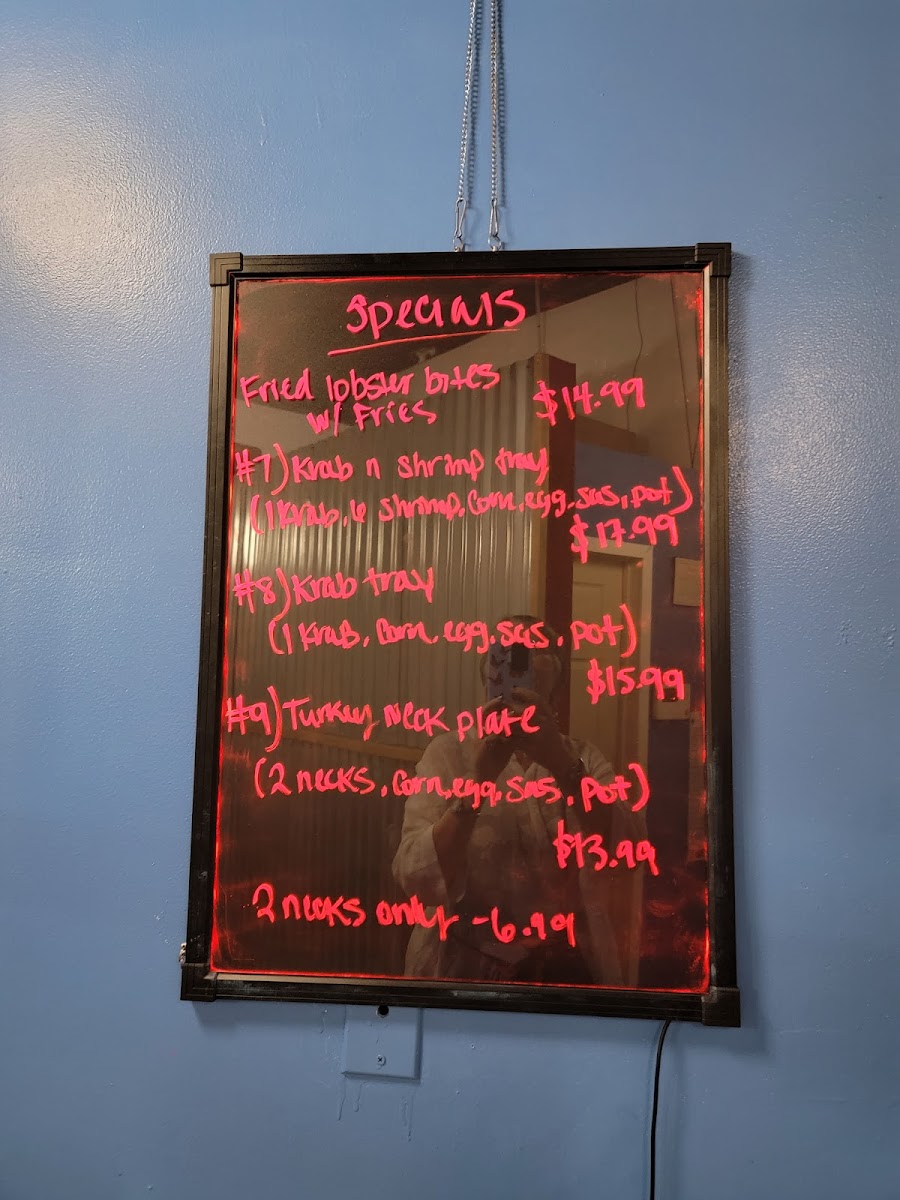 Specials
Fried lobster bites
w/ Fries $14.99
#7) Krab n shrimp tray
(1 Krab, 6 shrimp, Corn, egg, sas, pot)
$17.99
#8) Krab tray
(1 Krab, Corn, egg, sas, pot)
$15.99
#9) Turkey Neck plate
(2 necks, Corn, egg, sas, pot)
$13.99
2 necks only - 6.99